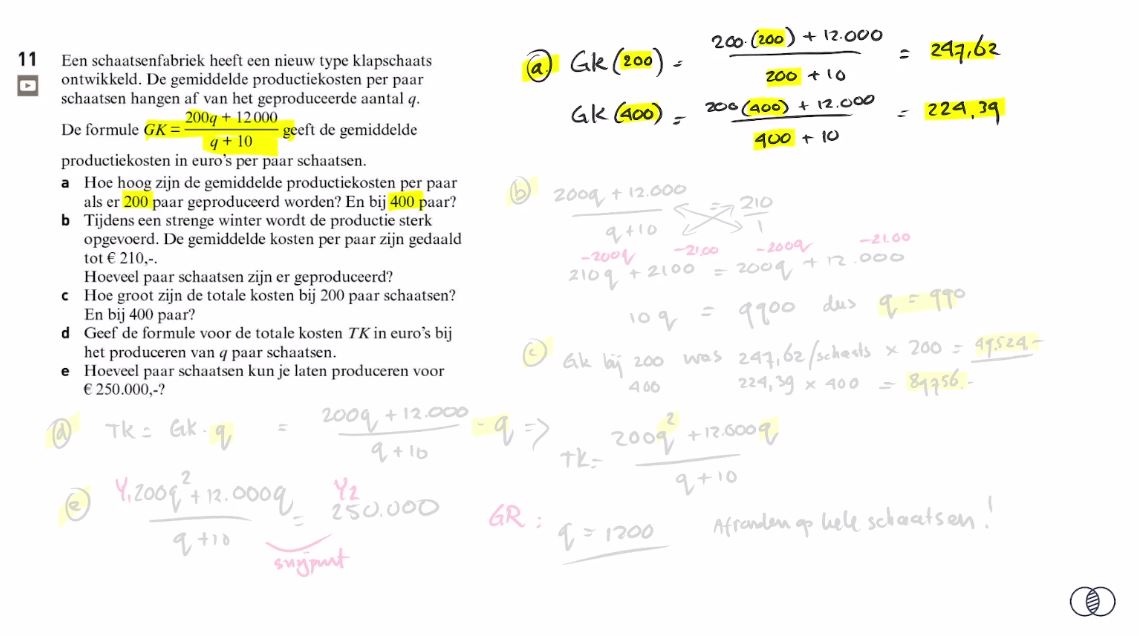 11
Een schaatsenfabriek heeft een nieuw type klapschaats
ontwikkeld. De gemiddelde productiekosten per paar
schaatsen hangen af van het geproduceerde aantal q.
De formule GK = (200q + 12 000)/(q + 10) geeft de gemiddelde
productiekosten in euro's per paar schaatsen.
a Hoe hoog zijn de gemiddelde productiekosten per paar
als er 200 paar geproduceerd worden? En bij 400 paar?
b Tijdens een strenge winter wordt de productie sterk
opgevoerd. De gemiddelde kosten per paar zijn gedaald
tot € 210,-.
Hoeveel paar schaatsen zijn er geproduceerd?
c Hoe groot zijn de totale kosten bij 200 paar schaatsen?
En bij 400 paar?
d Geef de formule voor de totale kosten TK in euro's bij
het produceren van q paar schaatsen.
e Hoeveel paar schaatsen kun je laten produceren voor
€ 250.000,-?
a Gk(200) = (200·(200) + 12.000)/(200 + 10) = 247,62
Gk(400) = (200(400) + 12.000)/(400 + 10) = 224,39
b (200q + 12.000)/(q + 10) = 210/1
-200q -2100 -200q -2100
210q + 2100 = 200q + 12.000
10q = 9900 dus q = 990
c Gk bij 200 was 247,62/schaats × 200 = 49.524,-
400 224,39 × 400 = 89756,-
d Tk = Gk · q = (200q + 12.000)/(q + 10) · q => TK = (200q² + 12.000q)/(q + 10)
e Y1 (200q² + 12.000q)/(q + 10) = Y2 250.000
snijpunt
GR: q = 1200 Afronden op hele schaatsen!